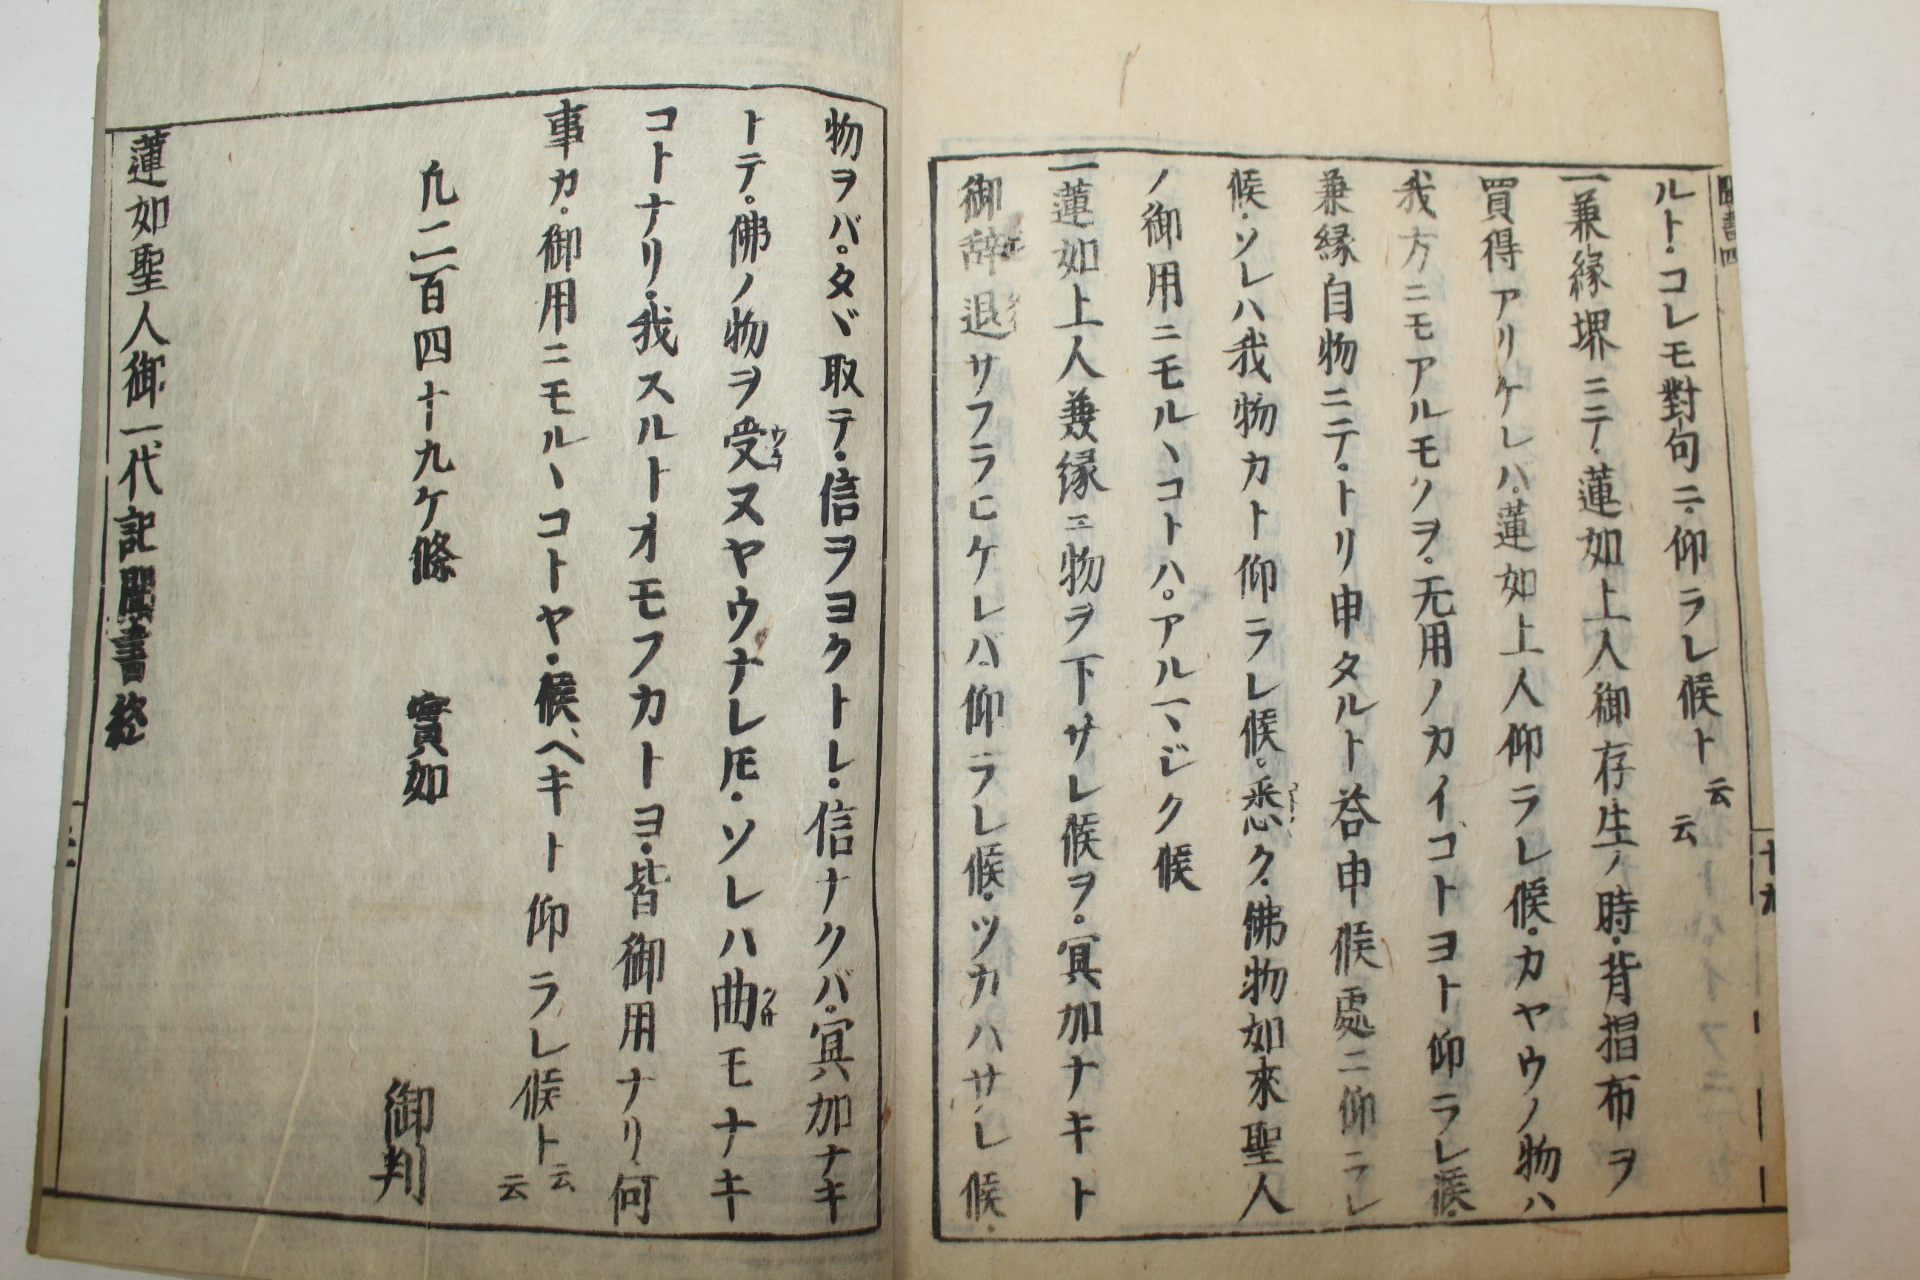 ルト・コレモ對句ニ・仰ラレ候ト云云
一兼縁堺ニテ・蓮如上人御存生ノ時・背摺布ヲ
買得アリケレバ・蓮如上人仰ラレ候・カヤウノ物ハ
我方ニモアルモノヲ・无用ノカイコトヨト仰ラレ候・
兼縁自物ニテ・トリ申タルト荅申候處ニ仰ラレ
候・ソレハ我物カト仰ラレ候・悉ク・佛物如來聖人
ノ御用ニモルヽコトハ・アルマジク候
一蓮如上人兼縁ニ物ヲ下サレ候ヲ・冥加ナキト
御辞退サフラヒケレバ・仰ラレ候・ツカハサレ候・
物ヲバ・タヾ取テ・信ヲヨクトレ・信ナクバ・冥加ナキ
トテ・佛ノ物ヲ受ヌヤウナレ𪜈・ソレハ曲モナキ
コトナリ・我スルトオモフカトヨ・皆御用ナリ・何
事カ・御用ニモルヽコトヤ・候ベキト仰ラレ候ト云云
凡二百四十九ケ條 實如 御判
蓮如聖人御一代記聞書終
聞書四
十九